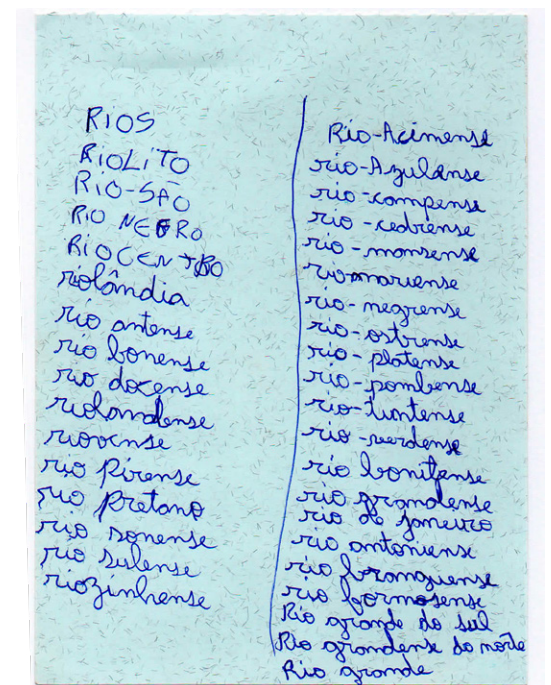 RIOS
RIOLITO
RIO-SÃO
RIO NEGRO
RIOCENTRO
riolândia
rio antense
rio bonense
rio docense
riolandense
riovense
rio Pirense
rio Pretano
rio sonense
rio sulense
riozinhense
Rio-Acimense
rio-Azulense
rio-compense
rio-cedrense
rio-monsense
riomariense
rio-negrense
rio-ostrense
rio-platense
rio-pombense
rio-tintense
rio-verdense
rio bonitense
rio grandense
rio de janeiro
rio antoniense
rio branquense
rio formosense
Rio grande do sul
Rio grandense do norte
Rio grande